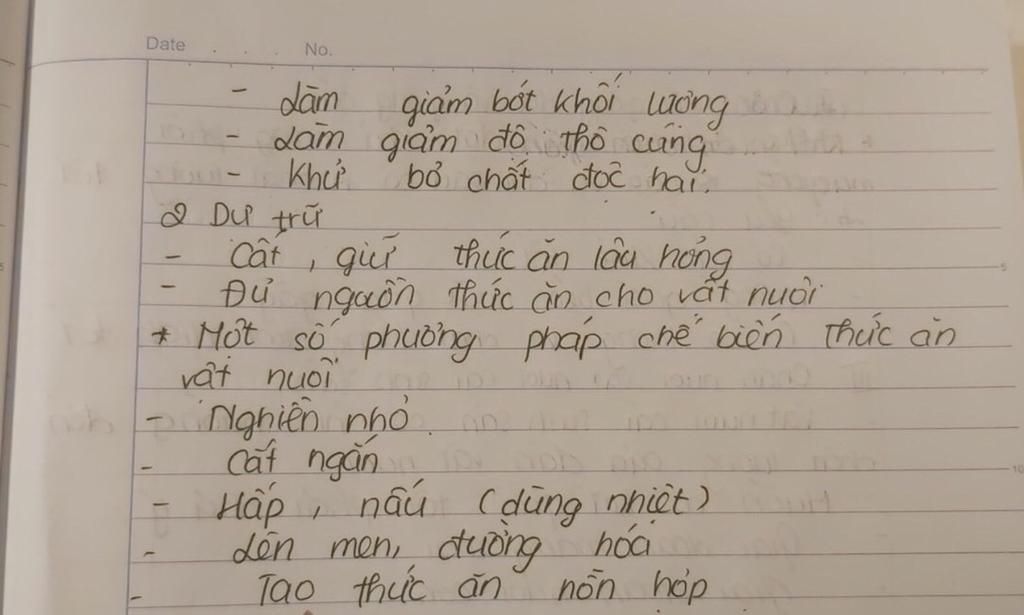 Date . . . No.
- Làm giảm bớt khối lượng
- Làm giảm độ thô cứng
- Khử bỏ chất độc hại.
2 Dự trữ
- Cất, giữ thức ăn lâu hỏng
- Đủ nguồn thức ăn cho vật nuôi
* Một số phương pháp chế biến thức ăn
vật nuôi
- Nghiền nhỏ.
- Cắt ngắn
- Hấp, nấu (dùng nhiệt)
- Lên men, đường hóa
- Tạo thức ăn hỗn hợp